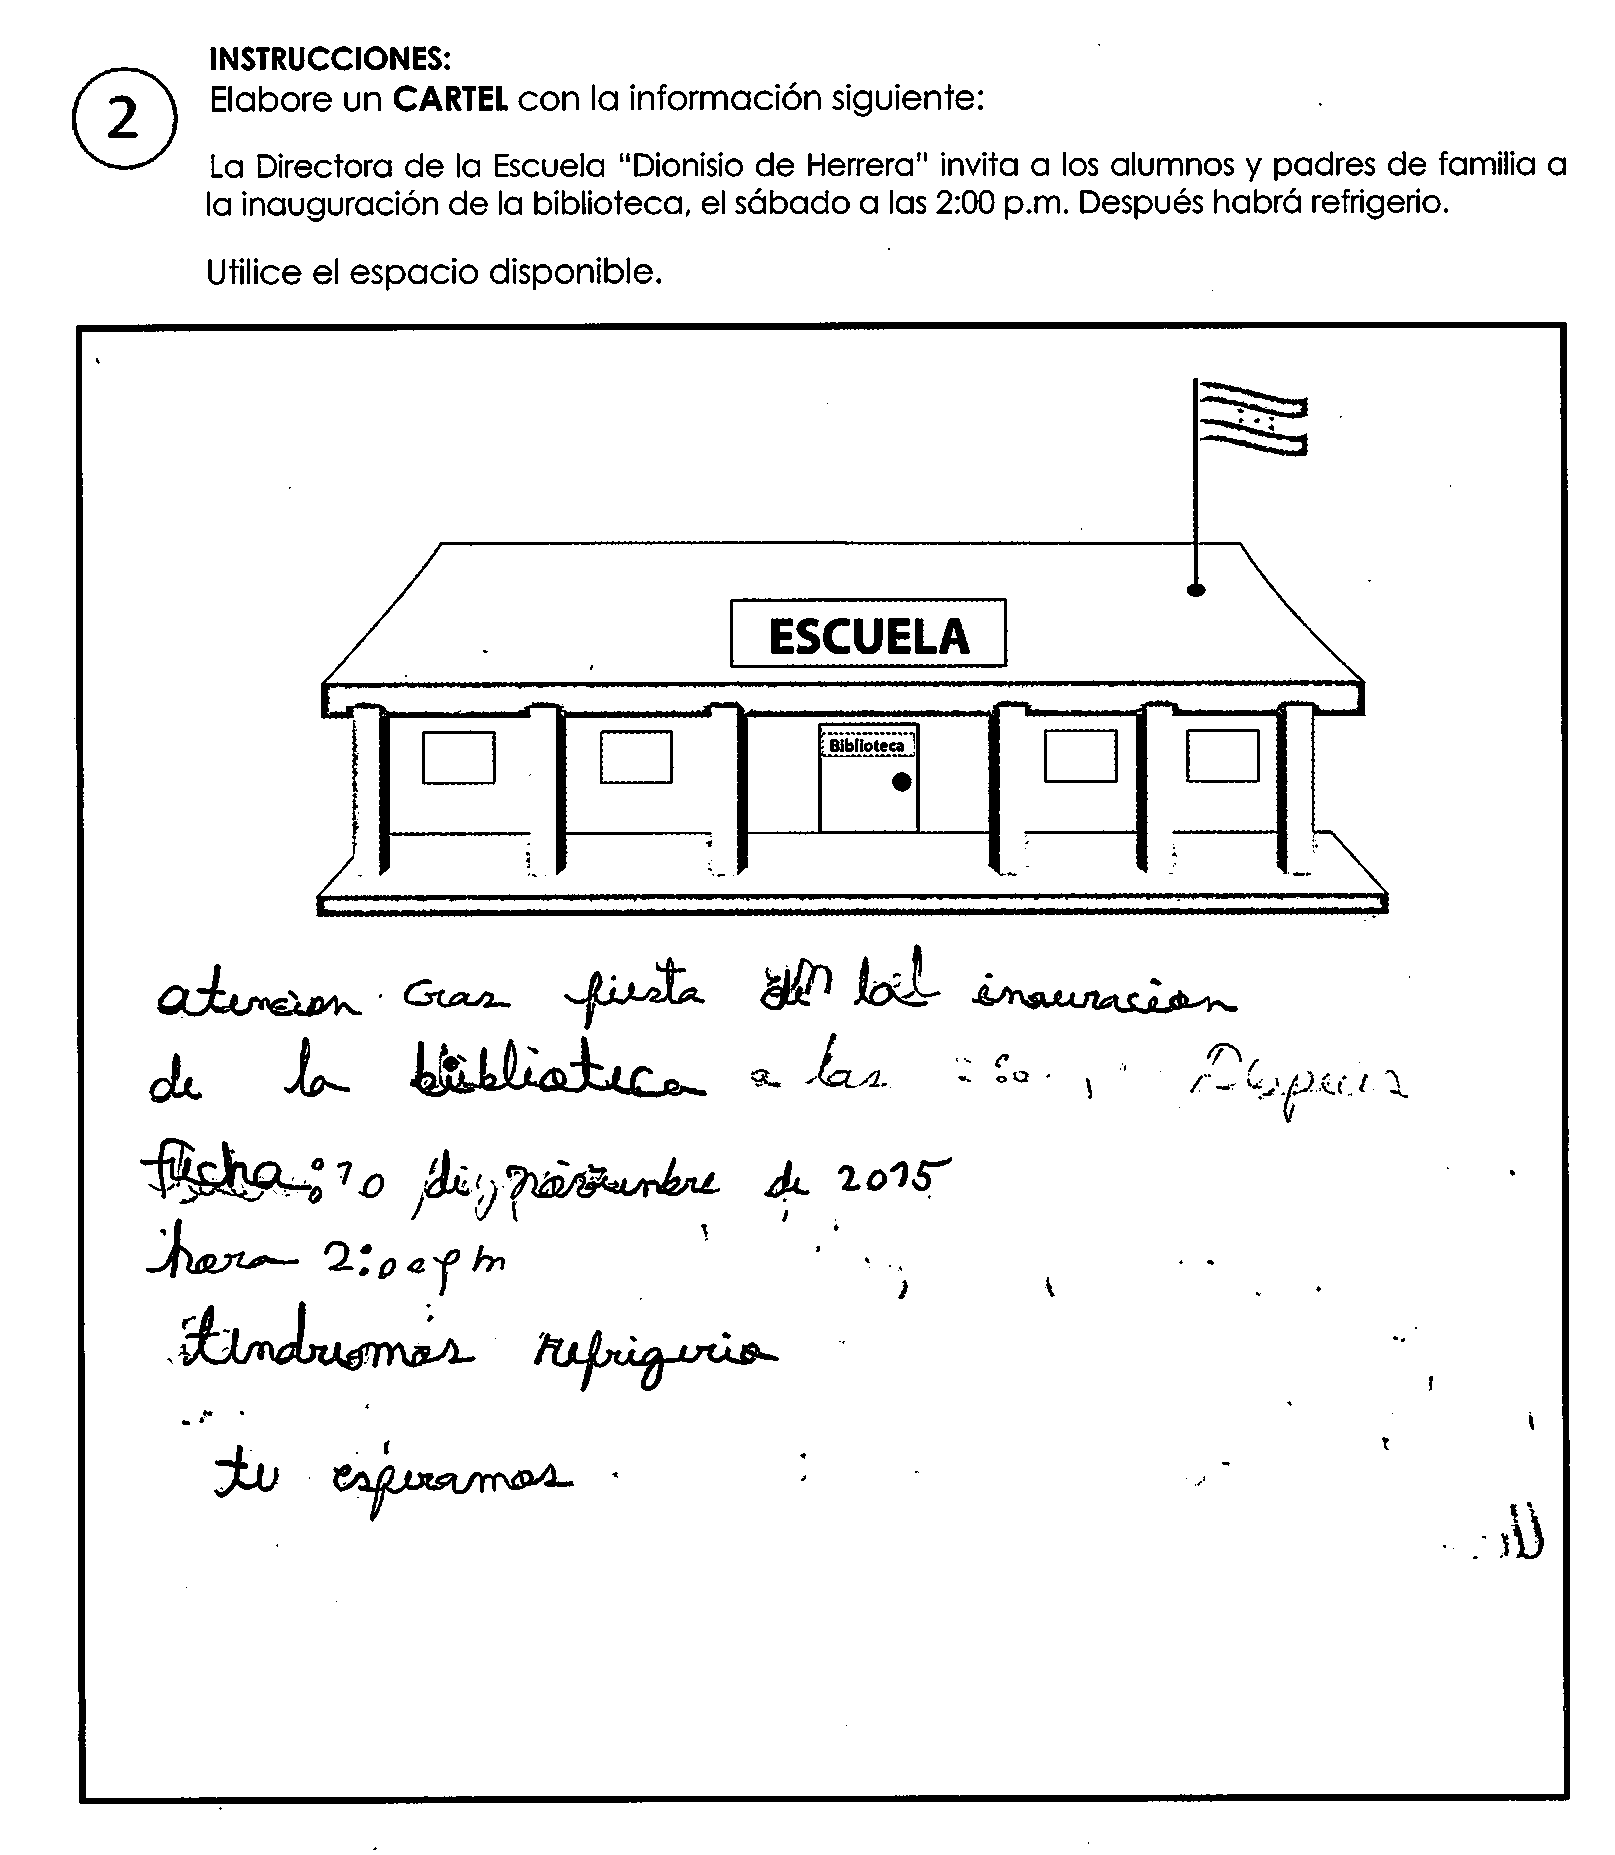 INSTRUCCIONES:
2
Elabore un CARTEL con la información siguiente:
La Directora de la Escuela "Dionisio de Herrera" invita a los alumnos y padres de familia a
la inauguración de la biblioteca, el sábado a las 2:00 p.m. Después habrá refrigerio.
Utilice el espacio disponible.
ESCUELA
Biblioteca
atencion fiesta inauracion
de la biblioteca a las Despues
fecha: 10 de noviembre de 2015
hora 2:00 pm
tendremos refrigerio
te esperamos